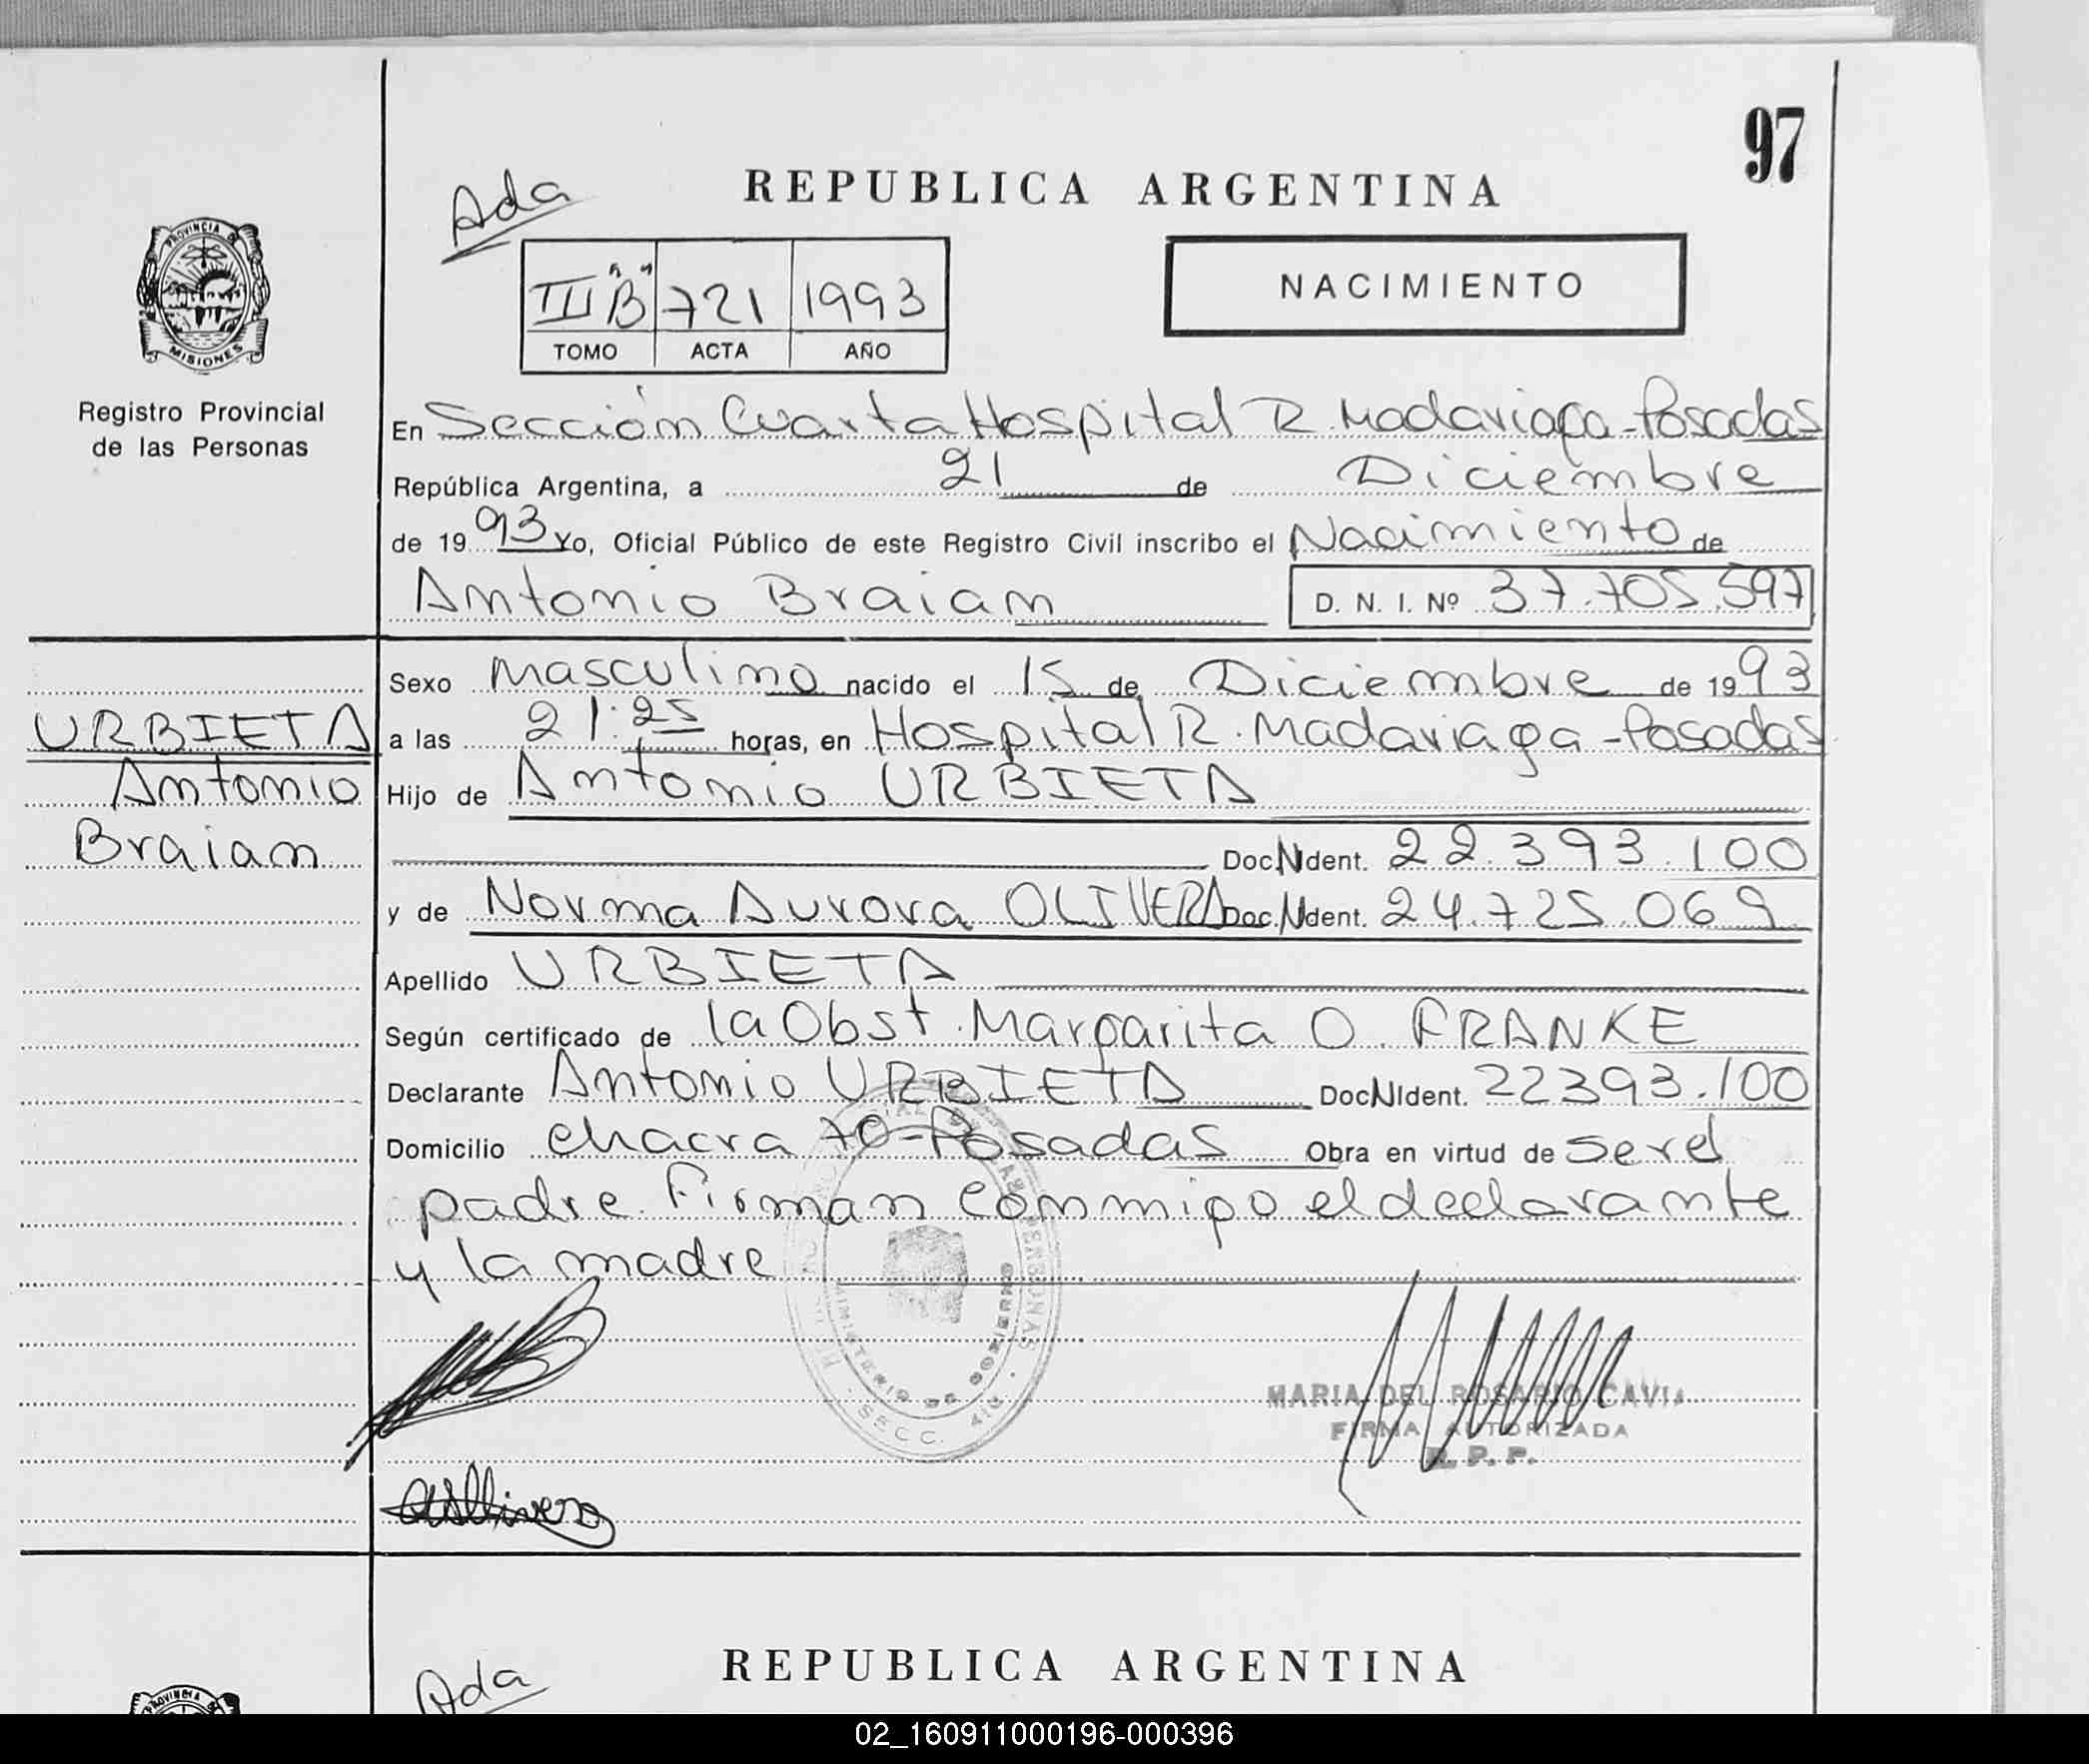 97
Ada
REPUBLICA ARGENTINA
III "B" 721 1993
TOMO ACTA AÑO
NACIMIENTO
PROVINCIA DE
MISIONES
Registro Provincial
de las Personas
En Sección Cuarta Hospital R. Madariaga - Posadas
República Argentina, a 21 de Diciembre
de 1993 Yo, Oficial Público de este Registro Civil inscribo el Nacimiento de
Antonio Braian D. N. I. Nº 37.705.597
Sexo Masculino nacido el 15 de Diciembre de 1993
URBIETA
Antonio
Braian
a las 21:25 horas, en Hospital R. Madariaga - Posadas
Hijo de Antonio URBIETA
Doc. N Ident. 22.393.100
y de Norma Aurora OLIVERA Doc. N Ident. 24.725.069
Apellido URBIETA
Según certificado de la Obst. Margarita O. FRANKE
Declarante Antonio URBIETA Doc N Ident. 22393.100
Domicilio chacra 70 - Posadas Obra en virtud de ser el
padre. Firman conmigo el declarante
y la madre
PERSONAS
MINISTERIO DE GOBIERNO
SECC. 4ta.
MARIA DEL ROSARIO CAVIA
FIRMA AUTORIZADA
R. P. P.
Ollivera
REPUBLICA ARGENTINA
Ada
PROVINCIA
02_160911000196-000396